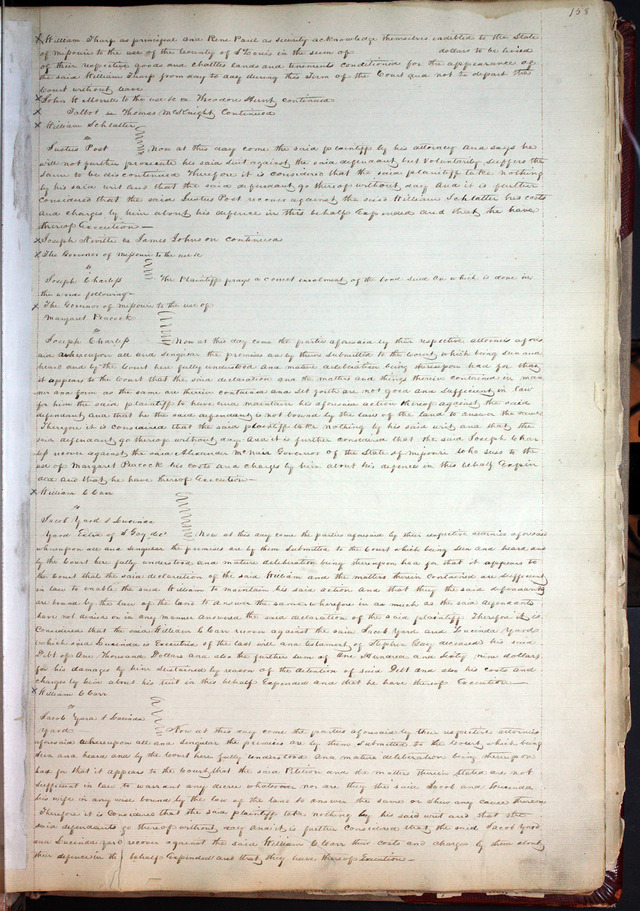 158
x William Tharp as principal and Rene Paul as security acknowledge themselves indebted to the State
of Missouri to the use of the County of St Louis in the sum of dollars to be levied
of their respective goods and chattles lands and tenements conditioned for the appearance of
the said William Tharp from day to day during this Term of the Court and not to depart the
Court without leave
x John W Morre to the use &c vs Theodore Hunt continued
x Talbot vs Thomas McKnight Continued
x William Schlatter
vs
Justus Post Now at this day come the said plaintiff by his attorney and says he
will not further prosecute his said suit against the said defendant but voluntarily suffers the
same to be discontinued Therefore it is considered that the said plaintiff take nothing
by his said writ and that the said defendant go thereof without day and it is further
considered that the said Justus Post recover against the said William Schlatter his costs
and charges by him about his defence in this behalf Expended and that he have
thereof Execution—
x Joseph Neville vs James Johnson continued
x The Governor of Missouri to the use &c
vs
Joseph Charless The Plaintiff prays a correct enrolment of the bond sued on which is done in
the words following
x The Governor of Missouri to the use of
Margaret Peacock
vs
Joseph Charless Now at this day come the parties aforesaid by their respective attornies afore
said whereupon all and singular the premises are by them submitted to the Court which being seen and
heard and by the Court here fully understood and mature deliberation being thereupon had for that
it appears to the Court that the said declaration and the matters and things therein contained in man
ner and form as the same are therein contained and set forth are not good and sufficient in law
for him the said plaintiff to have and maintain his aforesaid action thereof against the said
defendant and that he the said defendant is not bound by the laws of the land to answer the same
Therefore it is considered that the said plaintiff take nothing by his said writ and that the
said defendant go thereof without day And it is further considered that the said Joseph Char
less recover against the said Alexander McNair Governor of the State of Missouri who sues to the
use of Margaret Peacock his costs and charges by him about his defence in this behalf Expen
ded and that he have thereof Execution—
x William C Carr
vs
Jacob Yard & Lucinda
Yard Extrx of S Gay decd Now at this day come the parties aforesaid by their respective attornies aforesaid
whereupon all and singular the premises are by them submitted to the Court which being seen and heard and
by the Court here fully understood and mature deliberation being thereupon had for that it appears to
the Court that the said declaration of the said William and the matters therein contained are sufficient
in law to enable the said William to maintain his said action and that they the said defendants
are bound by the law of the land to answer the same wherefore in as much as the said defendants
have not denied or in any manner answered the said declaration of the said plaintiff Therefore it is
Considered that the said William C Carr recover against the said Jacob Yard and Lucinda Yard
which said Lucinda is Executrix of the last will and testament of Stephen Gay deceased his said
Debt of One Thousand Dollars and also the further sum of One Hundred and Sixty nine dollars
for his damages by him sustained by reason of the detention of said Debt and also his costs and
charges by him about his suit in this behalf Expended and that he have thereof Execution—
x William C Carr
vs
Jacob Yard & Lucinda
Yard Now at this day come the parties aforesaid by their respective attornies
aforesaid whereupon all and singular the premises are by them submitted to the Court, which being
seen and heard and by the Court here fully understood and mature deliberation being thereupon
had for that it appears to the Court that the said Petition and the matters therein Stated are not
sufficient in law to warrant any decree whatsoever nor are they the said Jacob and Lucinda
his wife in any wise bound by the law of the land to answer the same or shew any cause thereon
Therefore it is Considered that the said plaintiff take nothing by his said writ and that the
said defendants go thereof without day And it is further Considered that the said Jacob Yard
and Lucinda Yard recover against the said William C Carr their costs and charges by them about
their defence in this behalf Expended and that they have thereof Execution—